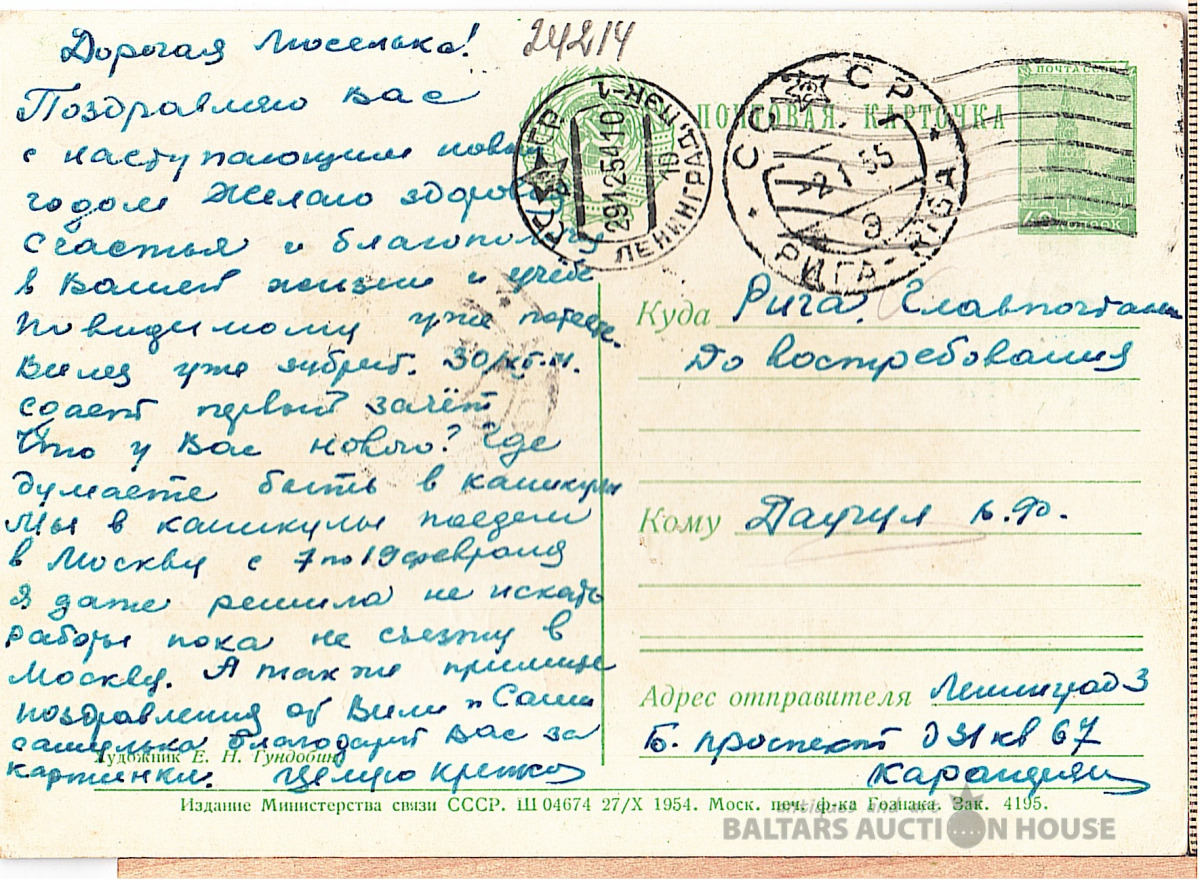 Дорогая Люсенька!
Поздравляю Вас
с наступающим новым
годом Желаю здоровья
счастья и благополучия
в Вашей жизни и учебе
По видимому уже
Вилен уже зубрит. 30/XII-м.
сдаёт первый зачёт
Что у Вас нового? Где
думаете быть в каникулы
Мы в каникулы поедем
в Москву с 7 по 19 февраля
Я даже решила не искать
работы пока не съезжу в
Москву. А также примите
поздравления от Вили и Саши
Сашулька благодарит Вас за
картинки. Целую крепко
24214
ПОЧТОВАЯ КАРТОЧКА
ПОЧТА СССР
40 КОПЕЕК
СССР
291254.10
ЛЕНИНГРАД.ПЖДП-1
10
СССР
-2 1 55
9
РИГА-RIGA
Куда Рига. Главпочтамт
До востребования
Кому Даугул В.Ф.
Адрес отправителя Ленинград 3
Б. проспект д 31 кв 67
Художник Е. Н. Гундобин
Издание Министерства связи СССР. Ш 04674 27/X 1954. Моск. печ. ф-ка Гознака. Зак. 4195.
BALTARS AUCTION HOUSE